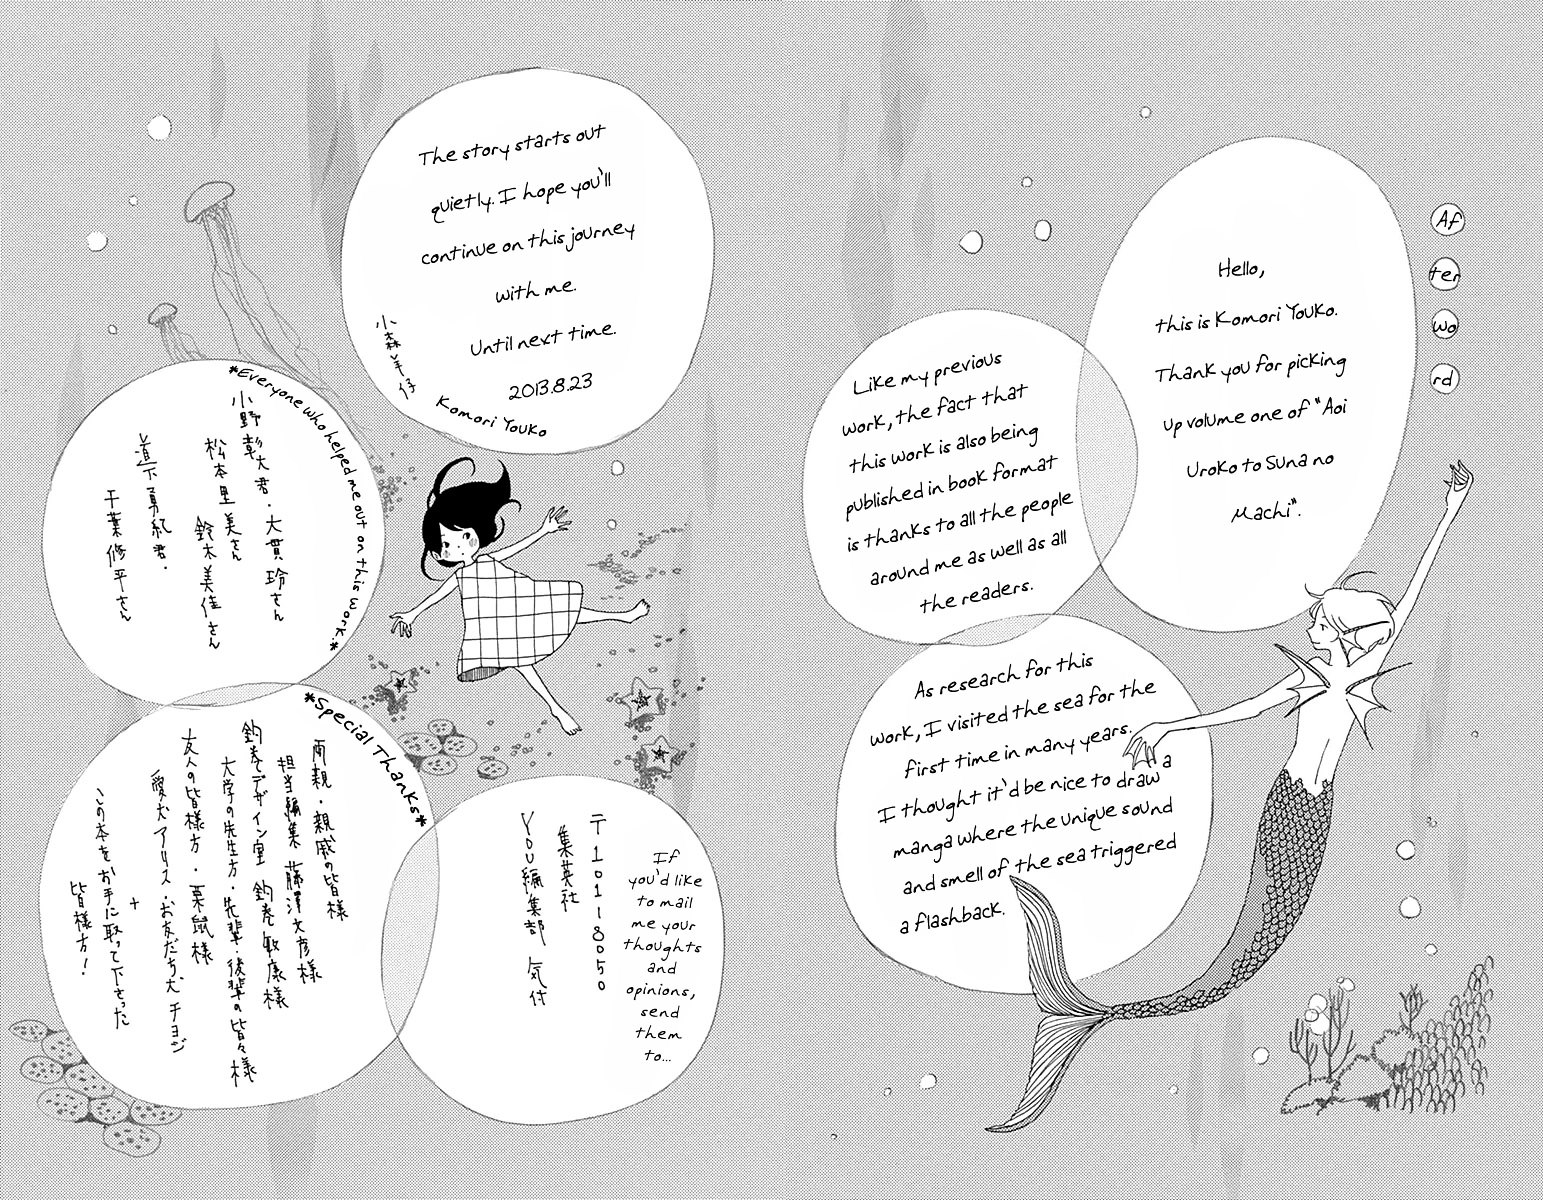 Af
ter
wo
rd
Hello,
this is Komori Youko.
Thank you for picking
up volume one of "Aoi
Uroko to Suna no
Machi".
Like my previous
work, the fact that
this work is also being
published in book format
is thanks to all the people
around me as well as all
the readers.
As research for this
work, I visited the sea for the
first time in many years.
I thought it'd be nice to draw a
manga where the unique sound
and smell of the sea triggered
a flashback.
The story starts out
quietly. I hope you'll
continue on this journey
with me.
Until next time.
2013.8.23
小森羊仔
Komori Youko
*Everyone who helped me out on this work.*
小野彰大君・大貫玲さん
松本里美さん
鈴木美佳さん
道下勇紀君・
千葉修平さん
*Special Thanks*
両親・親戚の皆様
担当編集 藤澤文彦様
釣巻デザイン室 釣巻敏康様
大学の先生方・先輩・後輩の皆々様
友人の皆様方・栗鼠様
愛犬アリス・お友だち犬チョジ
+
この本をお手に取って下さった
皆様方!
If
you'd like
to mail
me your
thoughts
and
opinions,
send
them
to...
〒101-8050
集英社
YOU編集部 気付